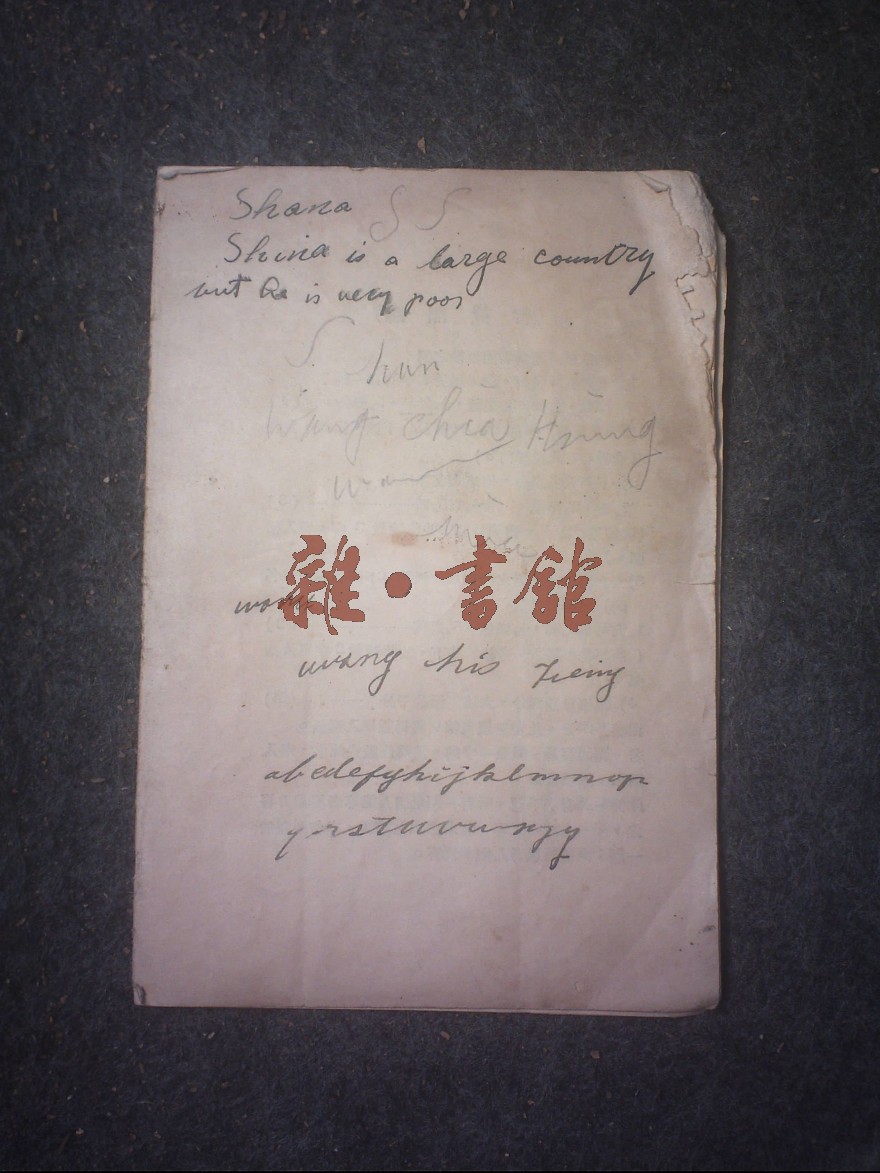 Shana S S
Shina is a large country
but he is very poor
S hun
Wang Chia Hsiung
雜·書館
wang
wang his
abcdefghijklmnop
qrstuvwxyz